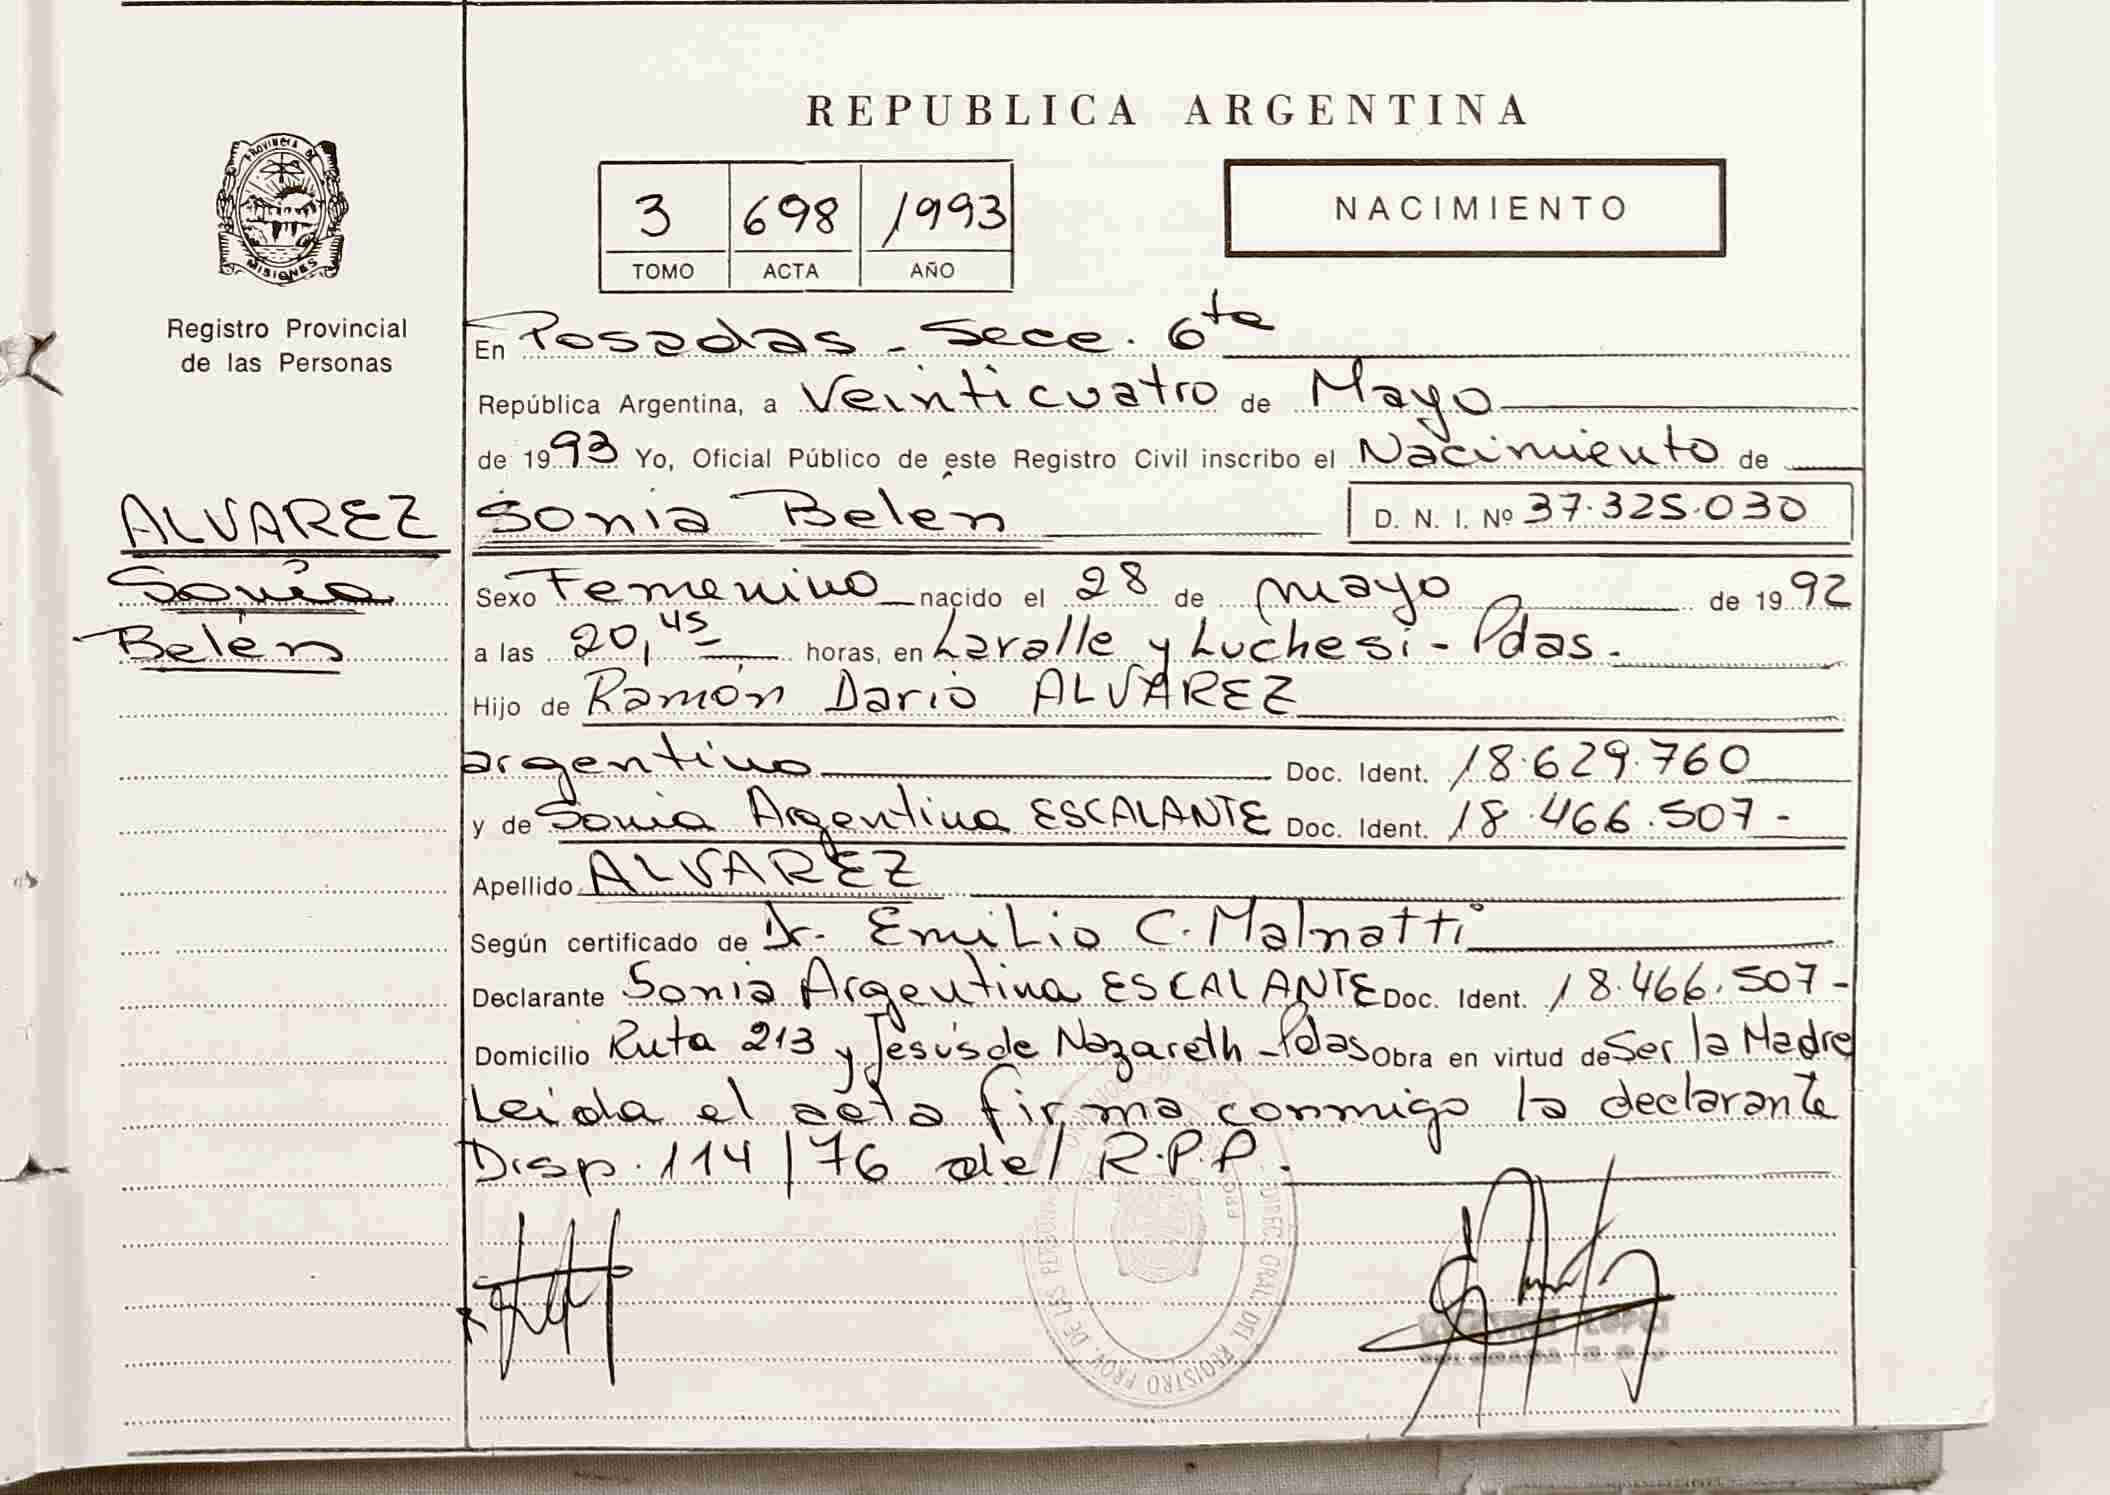 REPUBLICA ARGENTINA
PROVINCIA DE
MISIONES
Registro Provincial
de las Personas
3 698 1993
TOMO ACTA AÑO
NACIMIENTO
En Posadas - Secc. 6ta
República Argentina, a Veinticuatro de Mayo
de 1993 Yo, Oficial Público de este Registro Civil inscribo el Nacimiento de
ALVAREZ
Sonia
Belén
Sonia Belén D. N. I. Nº 37.325.030
Sexo Femenino nacido el 28 de mayo de 1992
a las 20,45 horas, en Lavalle y Luchesi - Pdas.
Hijo de Ramón Dario ALVAREZ
argentino Doc. Ident. 18.629.760
y de Sonia Argentina ESCALANTE Doc. Ident. 18.466.507-
Apellido ALVAREZ
Según certificado de Dr. Emilio C. Malnatti
Declarante Sonia Argentina ESCALANTE Doc. Ident. 18.466.507-
Domicilio Ruta 213 y Jesús de Nazareth - Pdas Obra en virtud de Ser la Madre
Leida el acta firma conmigo la declarante
Disp. 114/76 del R.P.P.
DIREC. GRAL. DEL REGISTRO PROV. DE LAS PERSONAS